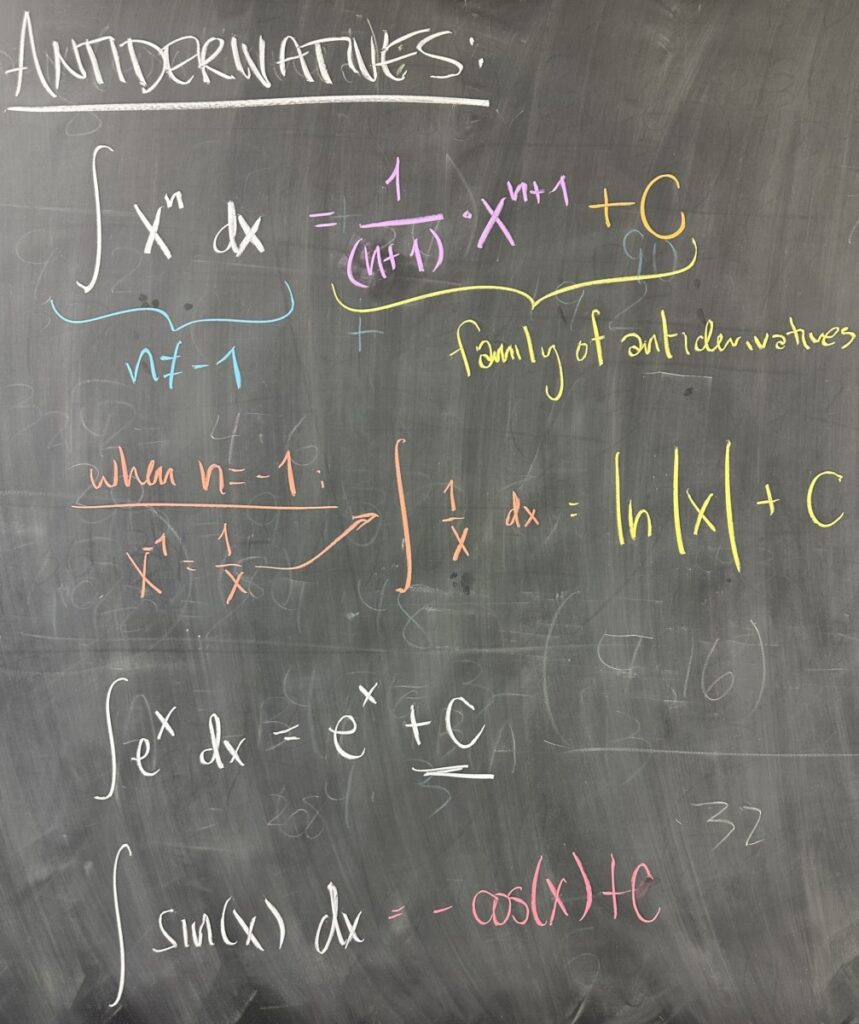 ANTIDERIVATIVES:
∫ xⁿ dx = 1/(n+1) · xⁿ⁺¹ + C
n ≠ -1
family of antiderivatives
when n = -1 :
x⁻¹ = 1/x → ∫ 1/x dx = ln |x| + C
∫ eˣ dx = eˣ + C
∫ sin(x) dx = - cos(x) + C